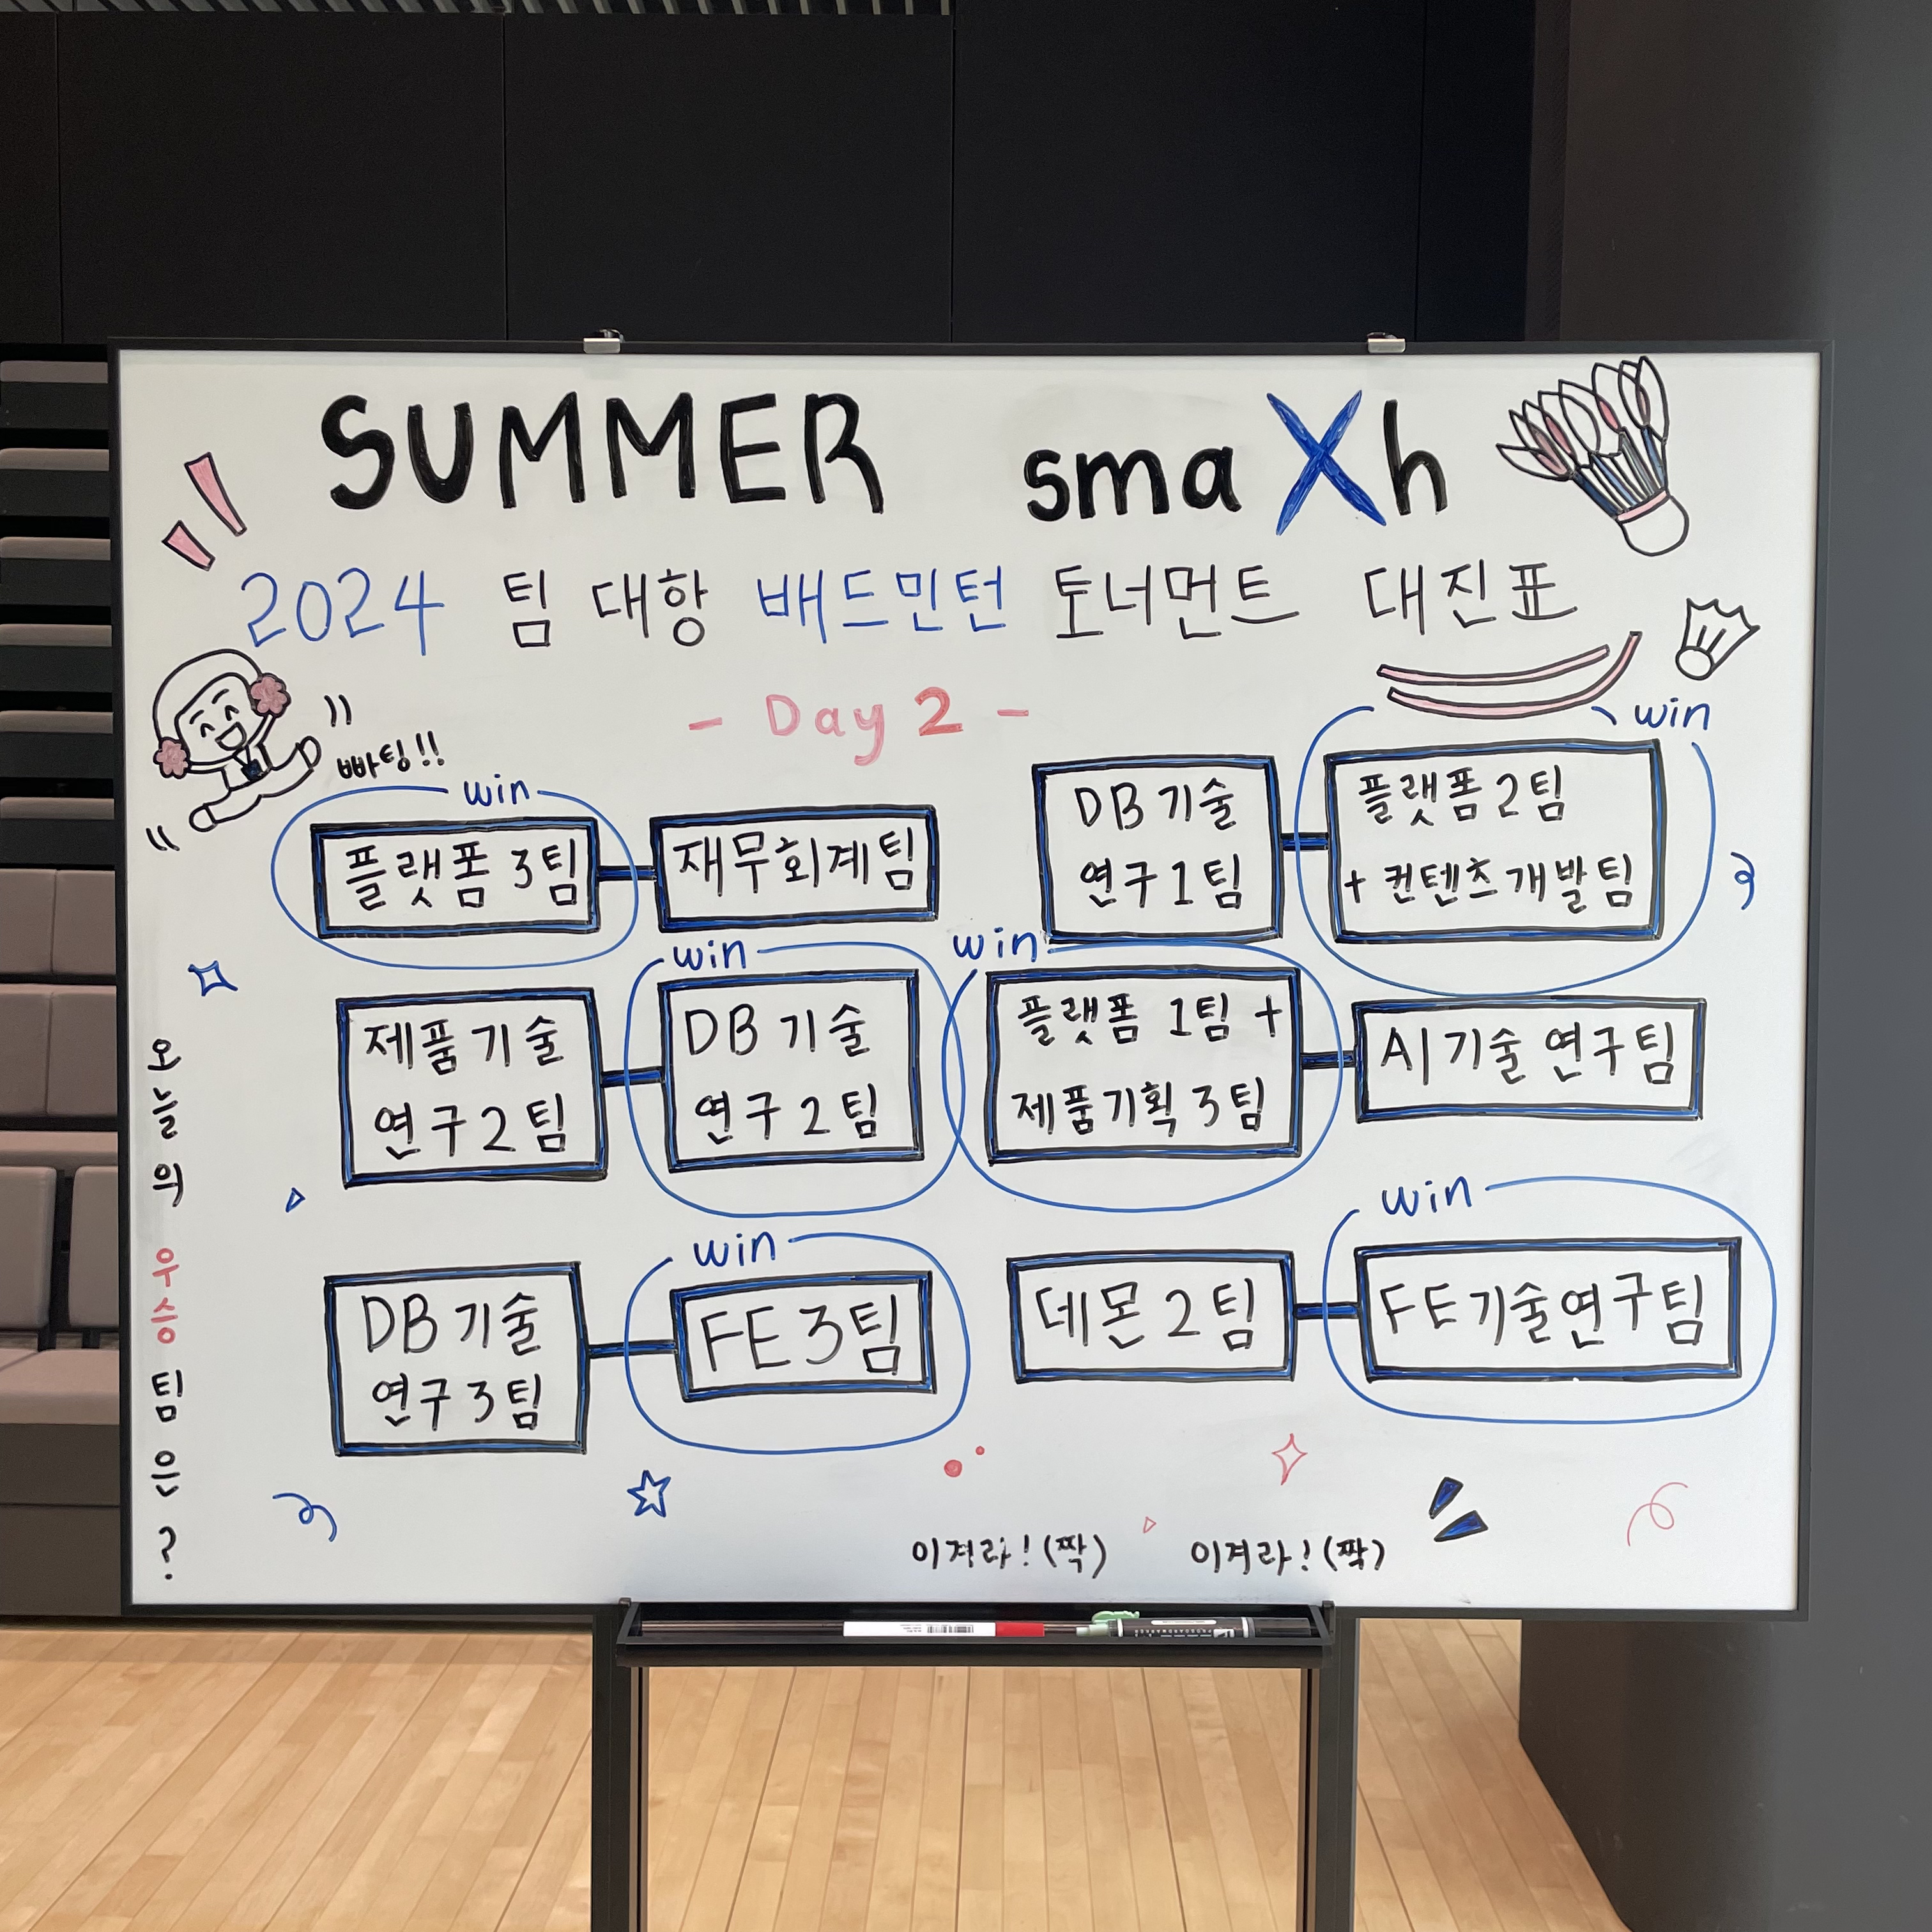 SUMMER smaXh
2024 팀 대항 배드민턴 토너먼트 대진표
- Day 2 -
빠팅!!
win
플랫폼 3팀
재무회계팀
DB 기술
연구1팀
win
플랫폼 2팀
+ 컨텐츠개발팀
제품기술
연구2팀
win
DB 기술
연구2팀
win
플랫폼 1팀 +
제품기획 3팀
AI기술 연구팀
DB 기술
연구3팀
win
FE 3팀
데몬 2팀
win
FE기술연구팀
오늘의 우승팀은?
이겨라! (짝) 이겨라! (짝)